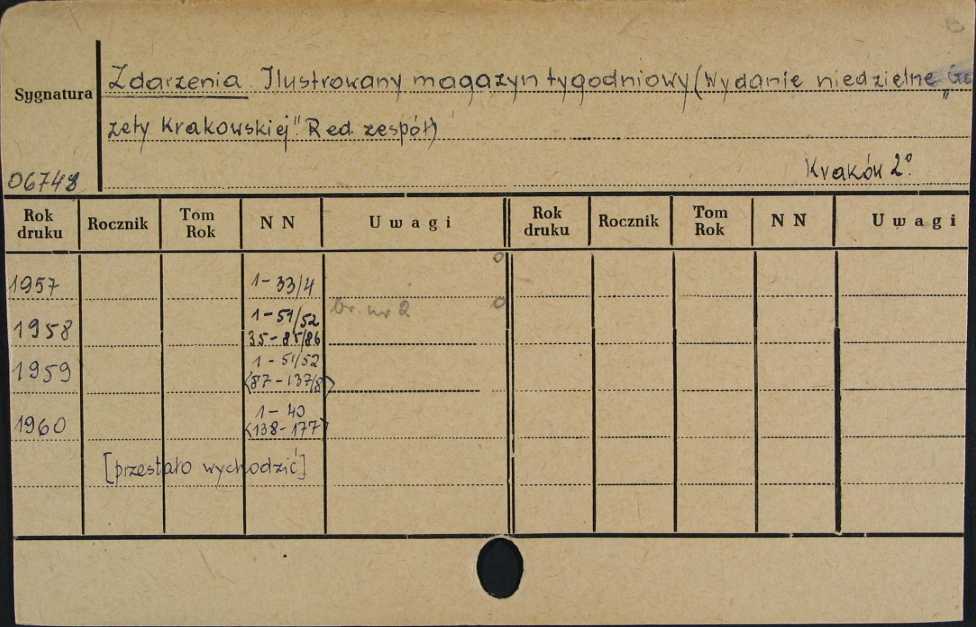 Zdarzenia Ilustrowany magazyn tygodniowy (Wydanie niedzielne „Ga
Sygnatura
zety Krakowskiej" Red zespół)
06748
Kraków 2°.
Rok druku Rocznik Tom Rok NN Uwagi Rok druku Rocznik Tom Rok NN Uwagi
1957 1-33/4
1958 1-51/52 br. nr 2
35-85/86
1959 1-51/52
(87-137/8)
1960 1-40
(138-177)
[przestało wychodzić]